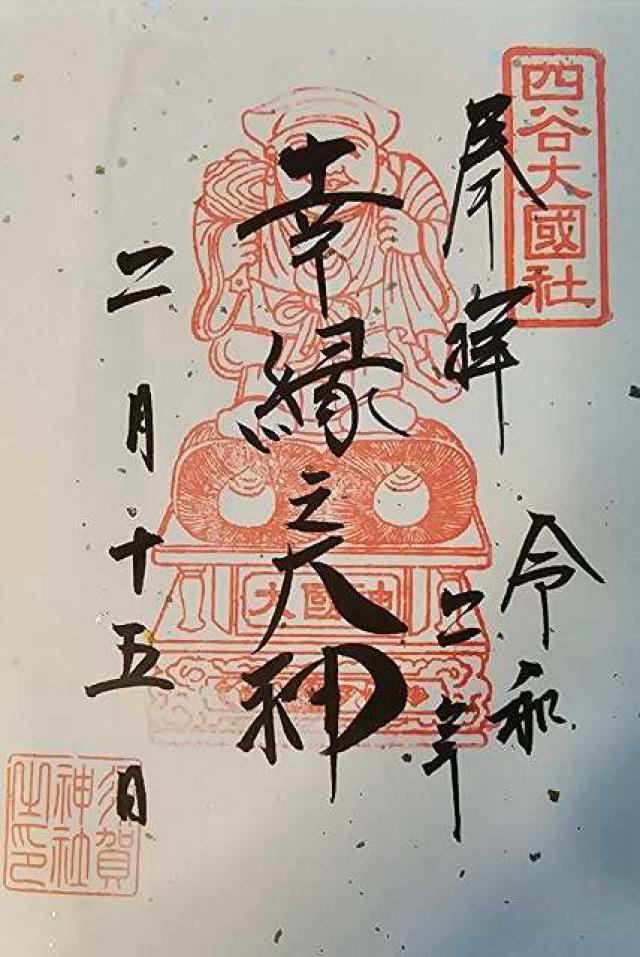 四谷大國社
奉拝
令和
二年
幸縁之大神
大國神
二月十五日
須賀
神社
之印